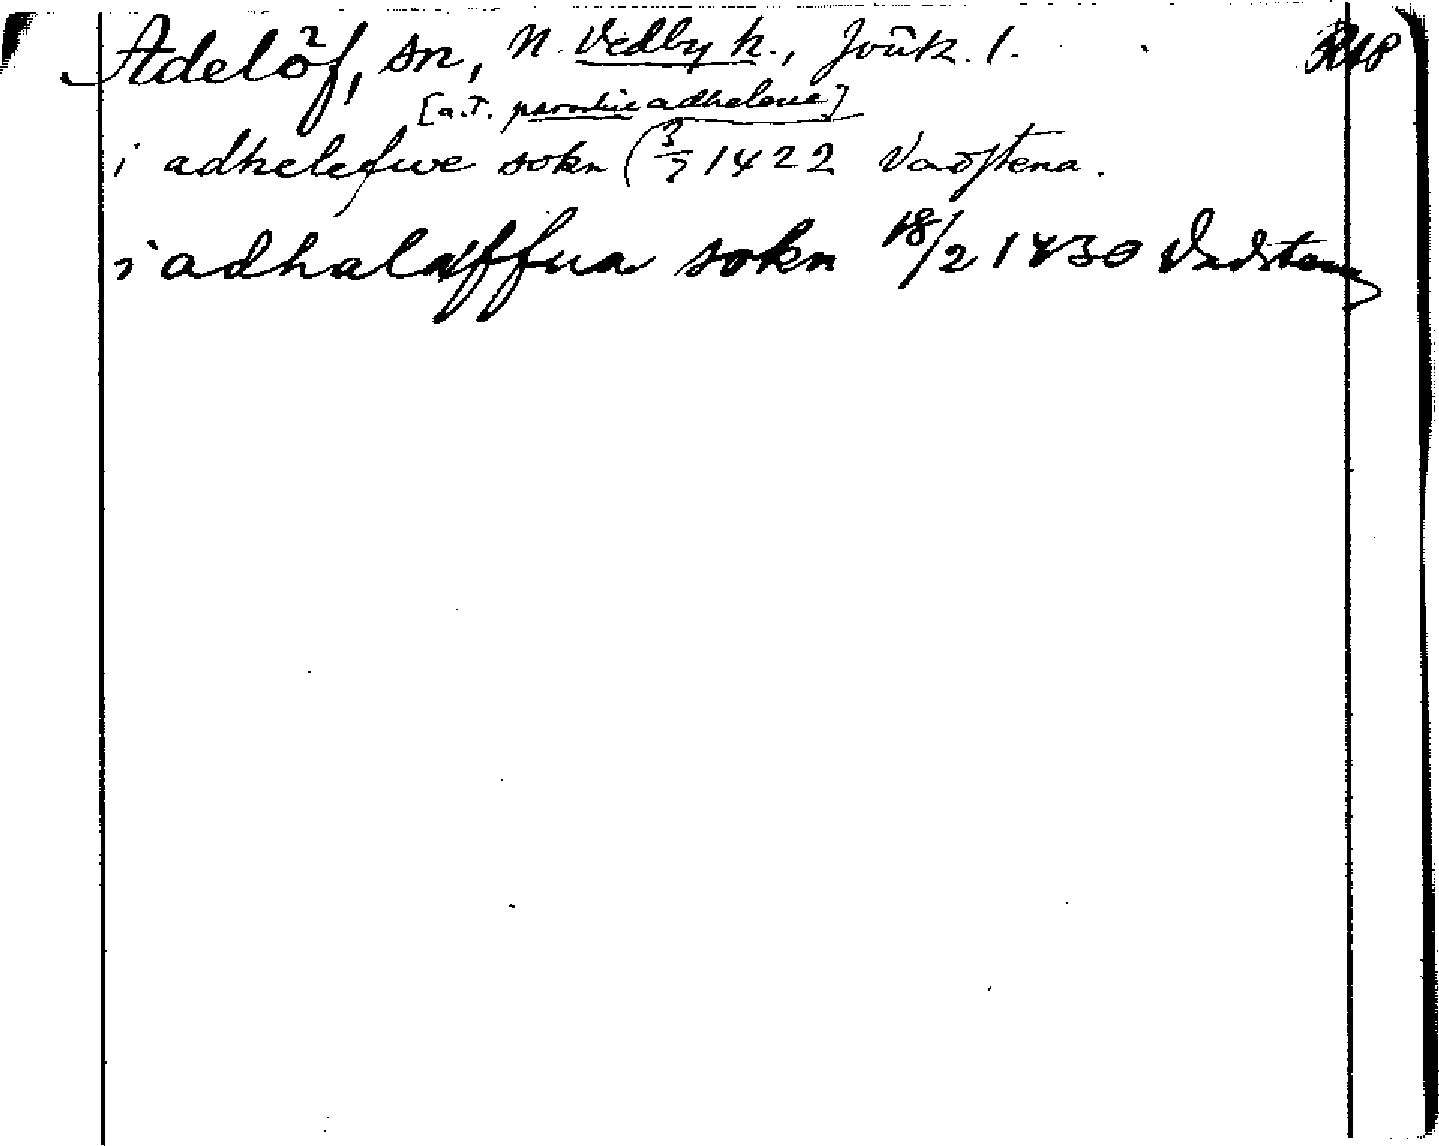 Adelöf, sn, N. Vedby h., Jönk. l.
[a.T. parochie adheleue]
i adhelefwe sokn (3/7 1422 Vadstena.
i adhalaffua sokn 18/2 1430 Vadstena